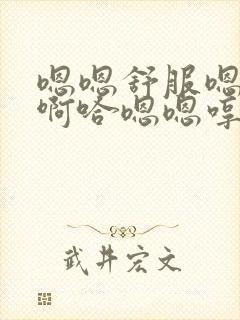 嗯嗯舒服嗯
啊哈嗯嗯哼
武井宏文